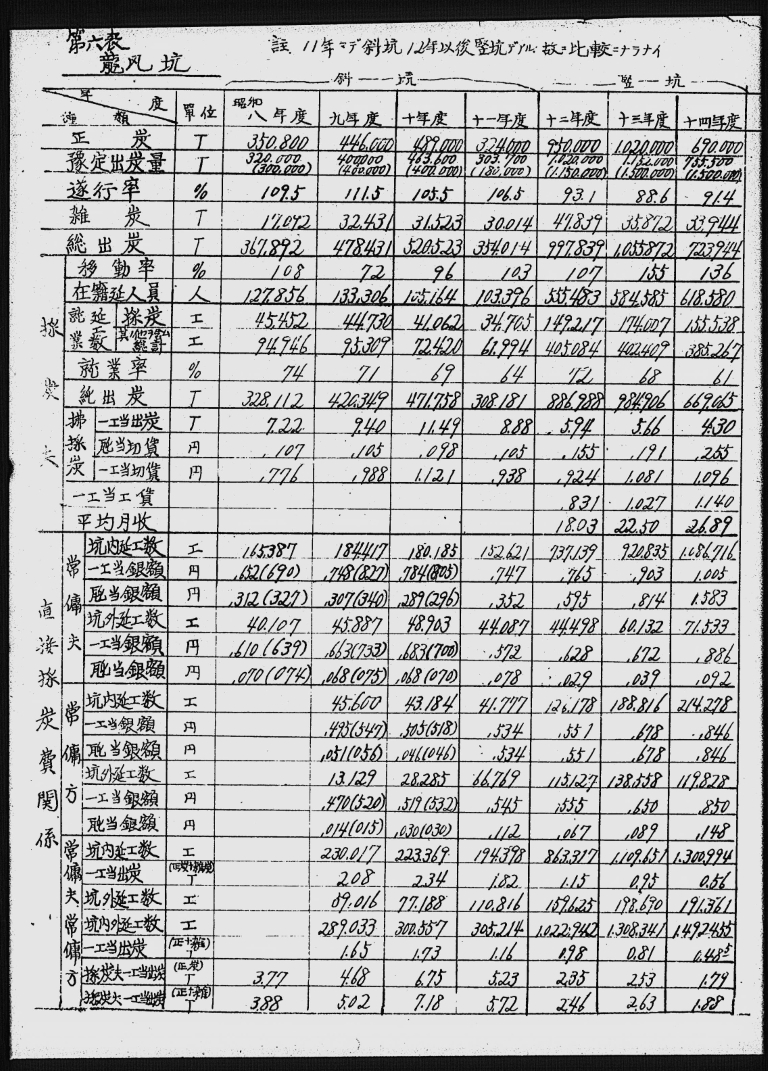 第六表
龍风坑
註 11年マデ斜坑12年以後竪坑デアル故ニ比較ニナラナイ
斜坑 竪坑
年度 種類 單位 昭和八年度 九年度 十年度 十一年度 十二年度 十三年度 十四年度
正炭 T 350.800 446.000 489.000 324.000 950.000 1.020.000 690.000
豫定出炭量 T 320.000 400000 463.600 303.700 1.020.000 1.152.000 755.500
(300.000) (400.000) (400.000) (180.000) (1.150.000) (1.500.000) (1.500.000)
遂行率 % 109.5 111.5 105.5 106.5 93.1 88.6 91.4
雑炭 T 17.092 32.431 31.523 30.014 47.839 35.872 33.944
総出炭 T 367.892 478.431 520.523 354.014 997.839 1.055.872 723.944
採炭夫
移動率 % 108 72 96 103 107 155 136
在籍延人員 人 127.856 133.306 105.164 103.396 555.483 584.585 618.580
就業延工数 採炭 工 45.452 44.730 41.062 34.705 149.217 174.007 155.538
総計 工 94.946 95.309 72.420 61.994 405.084 402.409 385.267
就業率 % 74 71 69 64 72 68 61
純出炭 T 328.112 420.349 471.758 308.181 886.988 984.906 669.065
採炭
一工当出炭 T 7.22 9.40 11.49 8.88 5.94 5.66 4.30
瓲当切賃 円 .107 .105 .098 .105 .155 .191 .255
一工当切賃 円 .776 .988 1.121 .938 .924 1.081 1.096
一工当工賃 .831 1.027 1.140
平均月收 18.03 22.50 26.89
直接採炭費関係
常傭夫
坑内延工数 工 165.387 184.417 180.185 152.621 737.139 920.835 1.086.716
一工当銀額 円 .652(690) .748(827) .784(805) .747 .765 .903 1.005
瓲当銀額 円 .312(327) .307(340) .289(296) .352 .595 .814 1.583
坑外延工数 工 40.107 45.887 48.903 44.087 44.498 60.132 71.533
一工当銀額 円 .610(639) .663(733) .683(700) .572 .628 .672 .886
瓲当銀額 円 .070(074) .068(075) .068(070) .078 .029 .039 .092
常傭方
坑内延工数 工 45.600 43.184 41.777 126.178 188.816 214.278
一工当銀額 円 .495(547) .505(518) .534 .551 .678 .846
瓲当銀額 円 .051(056) .046(046) .534 .551 .678 .846
坑外延工数 工 13.129 28.285 66.769 115.127 138.558 119.828
一工当銀額 円 .470(520) .519(532) .545 .555 .650 .850
瓲当銀額 円 .014(015) .030(030) .112 .067 .089 .148
常傭夫常傭方
坑内延工数 工 230.017 223.369 194.398 863.317 1.109.651 1.300.994
一工当出炭 T 2.08 2.34 1.82 1.15 0.95 0.56
坑外延工数 工 59.016 77.188 110.816 159.625 198.690 191.361
坑内外延工数 工 289.033 300.557 305.214 1.022.942 1.308.341 1.492.455
一工当出炭 (正+雑) T 1.65 1.73 1.16 0.98 0.81 0.48⁵
採炭夫一工当出炭 (正炭) T 3.77 4.68 6.75 5.23 2.35 2.53 1.79
採炭夫一工当出炭 (正+雑) T 3.88 5.02 7.18 5.72 2.46 2.63 1.88